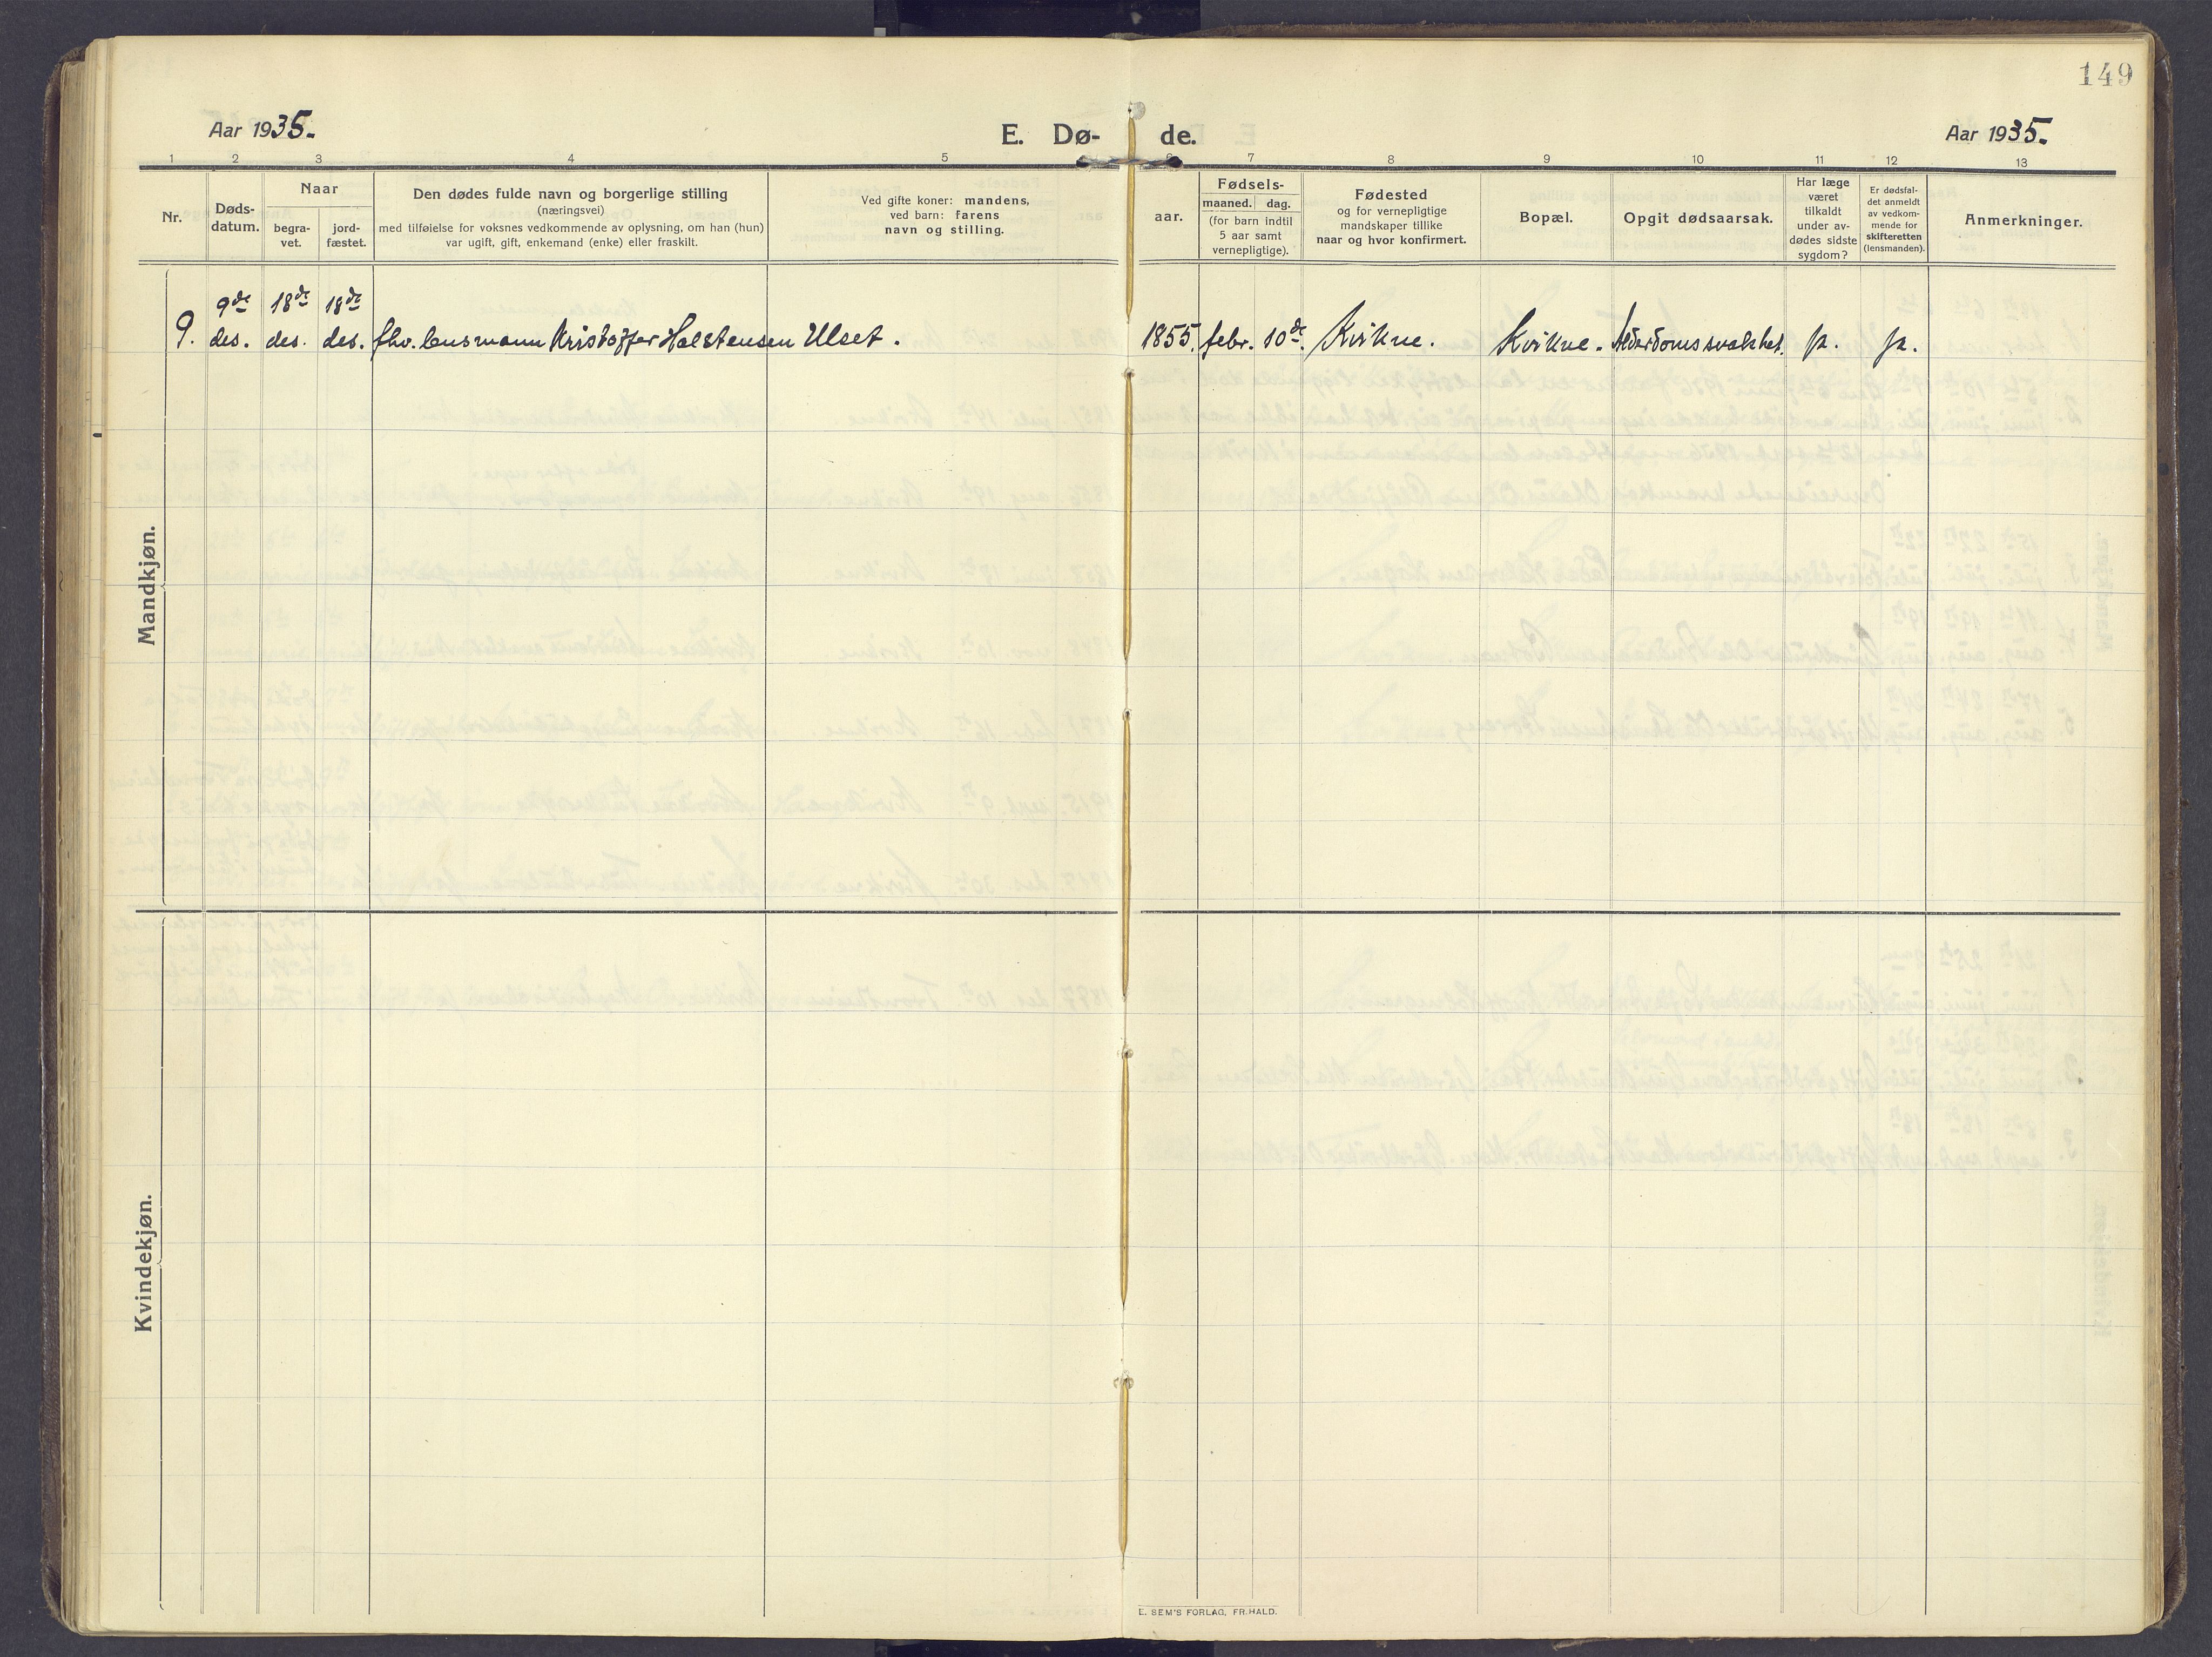 149
Aar 1935.
E. Dø-
de.
Aar 1935.
1 2 3 4 5 6 7 8 9 10 11 12 13
Nr.
Døds-
datum.
Naar
begra-
vet.
jord-
fæstet.
Den dødes fulde navn og borgerlige stilling
(næringsvei)
med tilføielse for voksnes vedkommende av oplysning, om han (hun)
var ugift, gift, enkemand (enke) eller fraskilt.
Ved gifte koner: mandens,
ved barn: farens
navn og stilling.
aar.
Fødsels-
maaned. dag.
(for barn indtil
5 aar samt
vernepligtige).
Fødested
og for vernepligtige
mandskaper tillike
naar og hvor konfirmert.
Bopæl.
Opgit dødsaarsak.
Har læge
været
tilkaldt
under av-
dødes sidste
sygdom?
Er dødsfal-
det anmeldt
av vedkom-
mende for
skifteretten
(lensmanden).
Anmerkninger.
Mandkjøn.
9de 18de 18de
9. des. des. des. fhv. lensmann Kristoffer Halstensen Ulset. 1855. febr. 10de. Kvikne. Kvikne. Alderdomssvakhet. ja. ja.
Kvindekjøn.
E. SEM'S FORLAG, FR.HALD.